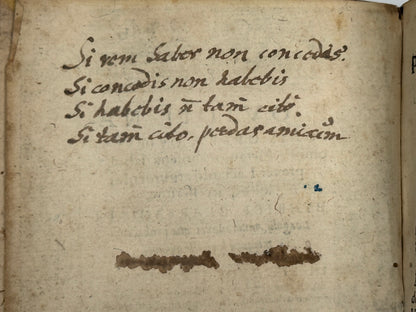 Si rem Saber non concedas.
Si concedis non habebis
Si habebis ñ tam̃ cito
Si tam̃ cito, perdas amicũm